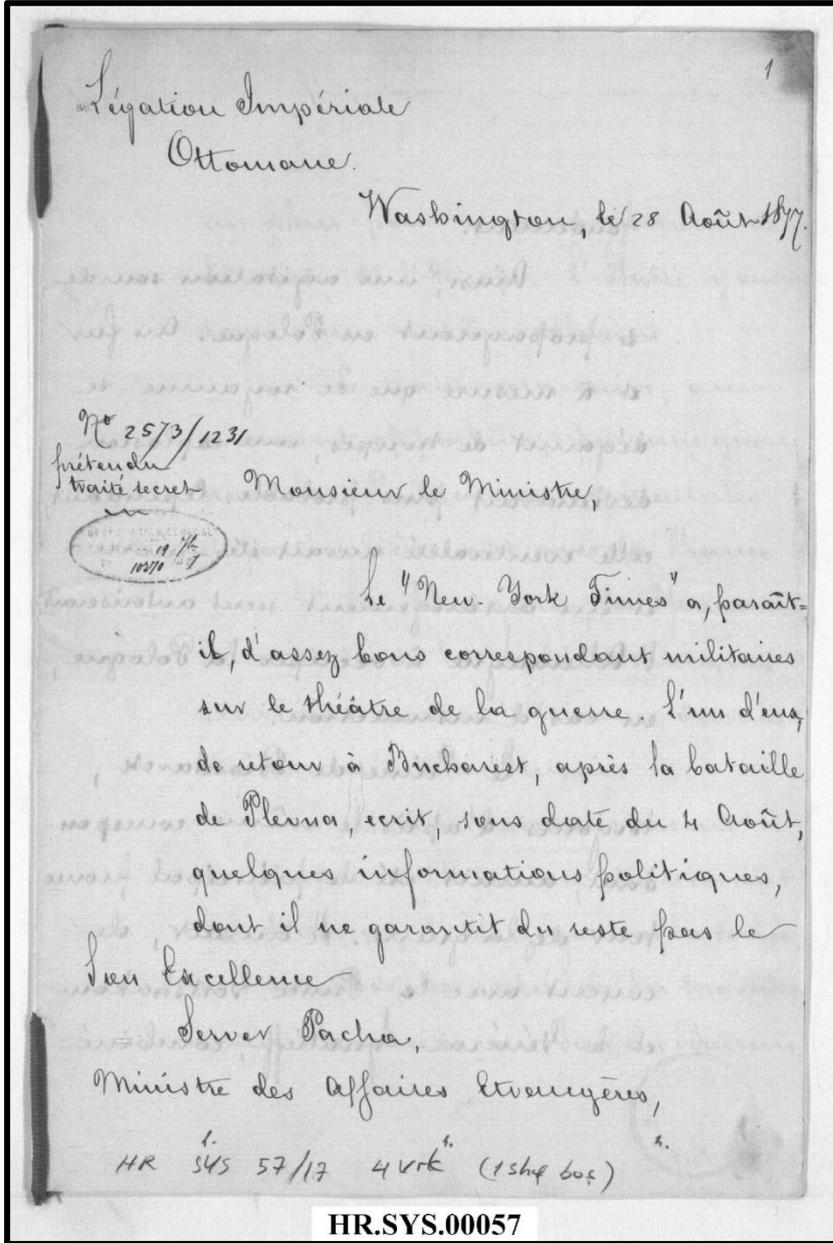 1
Légation Impériale
Ottomane.
Washington, le 28 Août 1877.
No 2573/1231
prétendu
traité secret
Monsieur le Ministre,
10370
19
Le "New York Times" a, paraît=
il, d'assez bons correspondant militaires
sur le théâtre de la guerre. L'un d'eux,
de retour à Bucharest, après la bataille
de Plevna, ecrit, sous date du 4 Août,
quelques informations politiques,
dont il ne garantit du reste pas le
Son Excellence
Server Pacha,
Ministre des Affaires Etrangères,
HR SYS 57/17 4 vrk (1 shf boş)
HR.SYS.00057